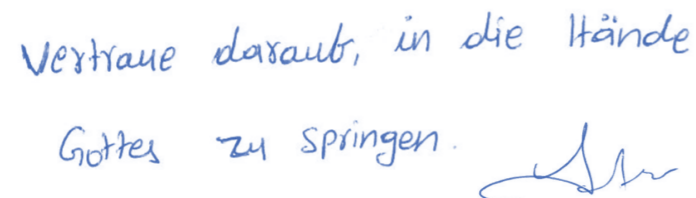 Vertraue darauf, in die Hände
Gottes zu springen.